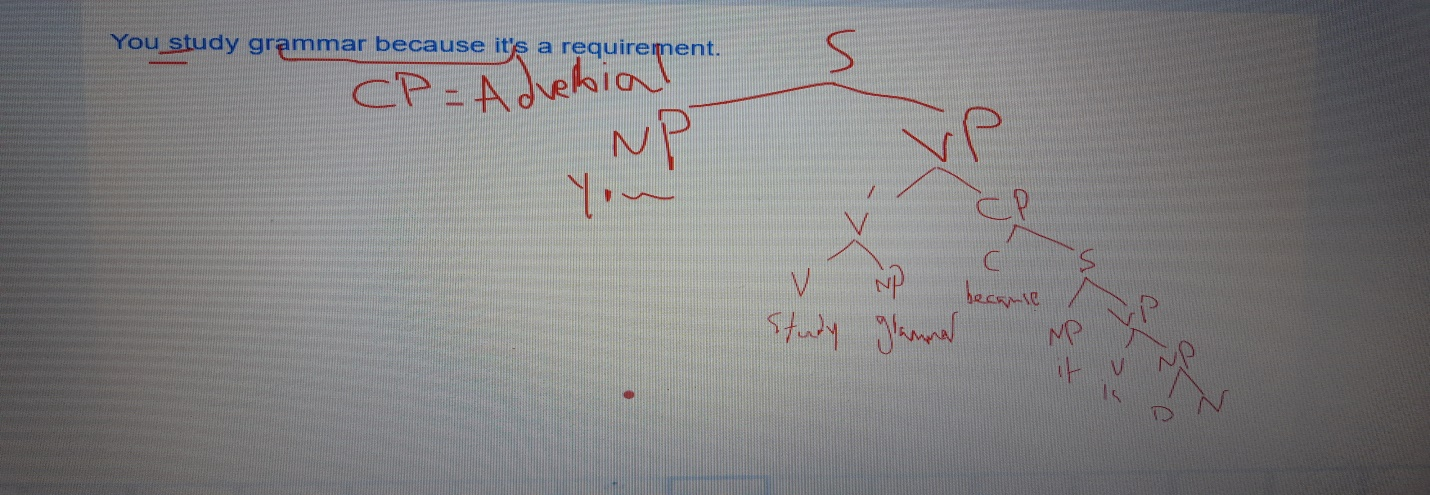 You study grammar because it's a requirement.
S
CP = Adverbial
NP VP
You
V' CP
V NP C S
study grammar because NP VP
it V NP
is D N